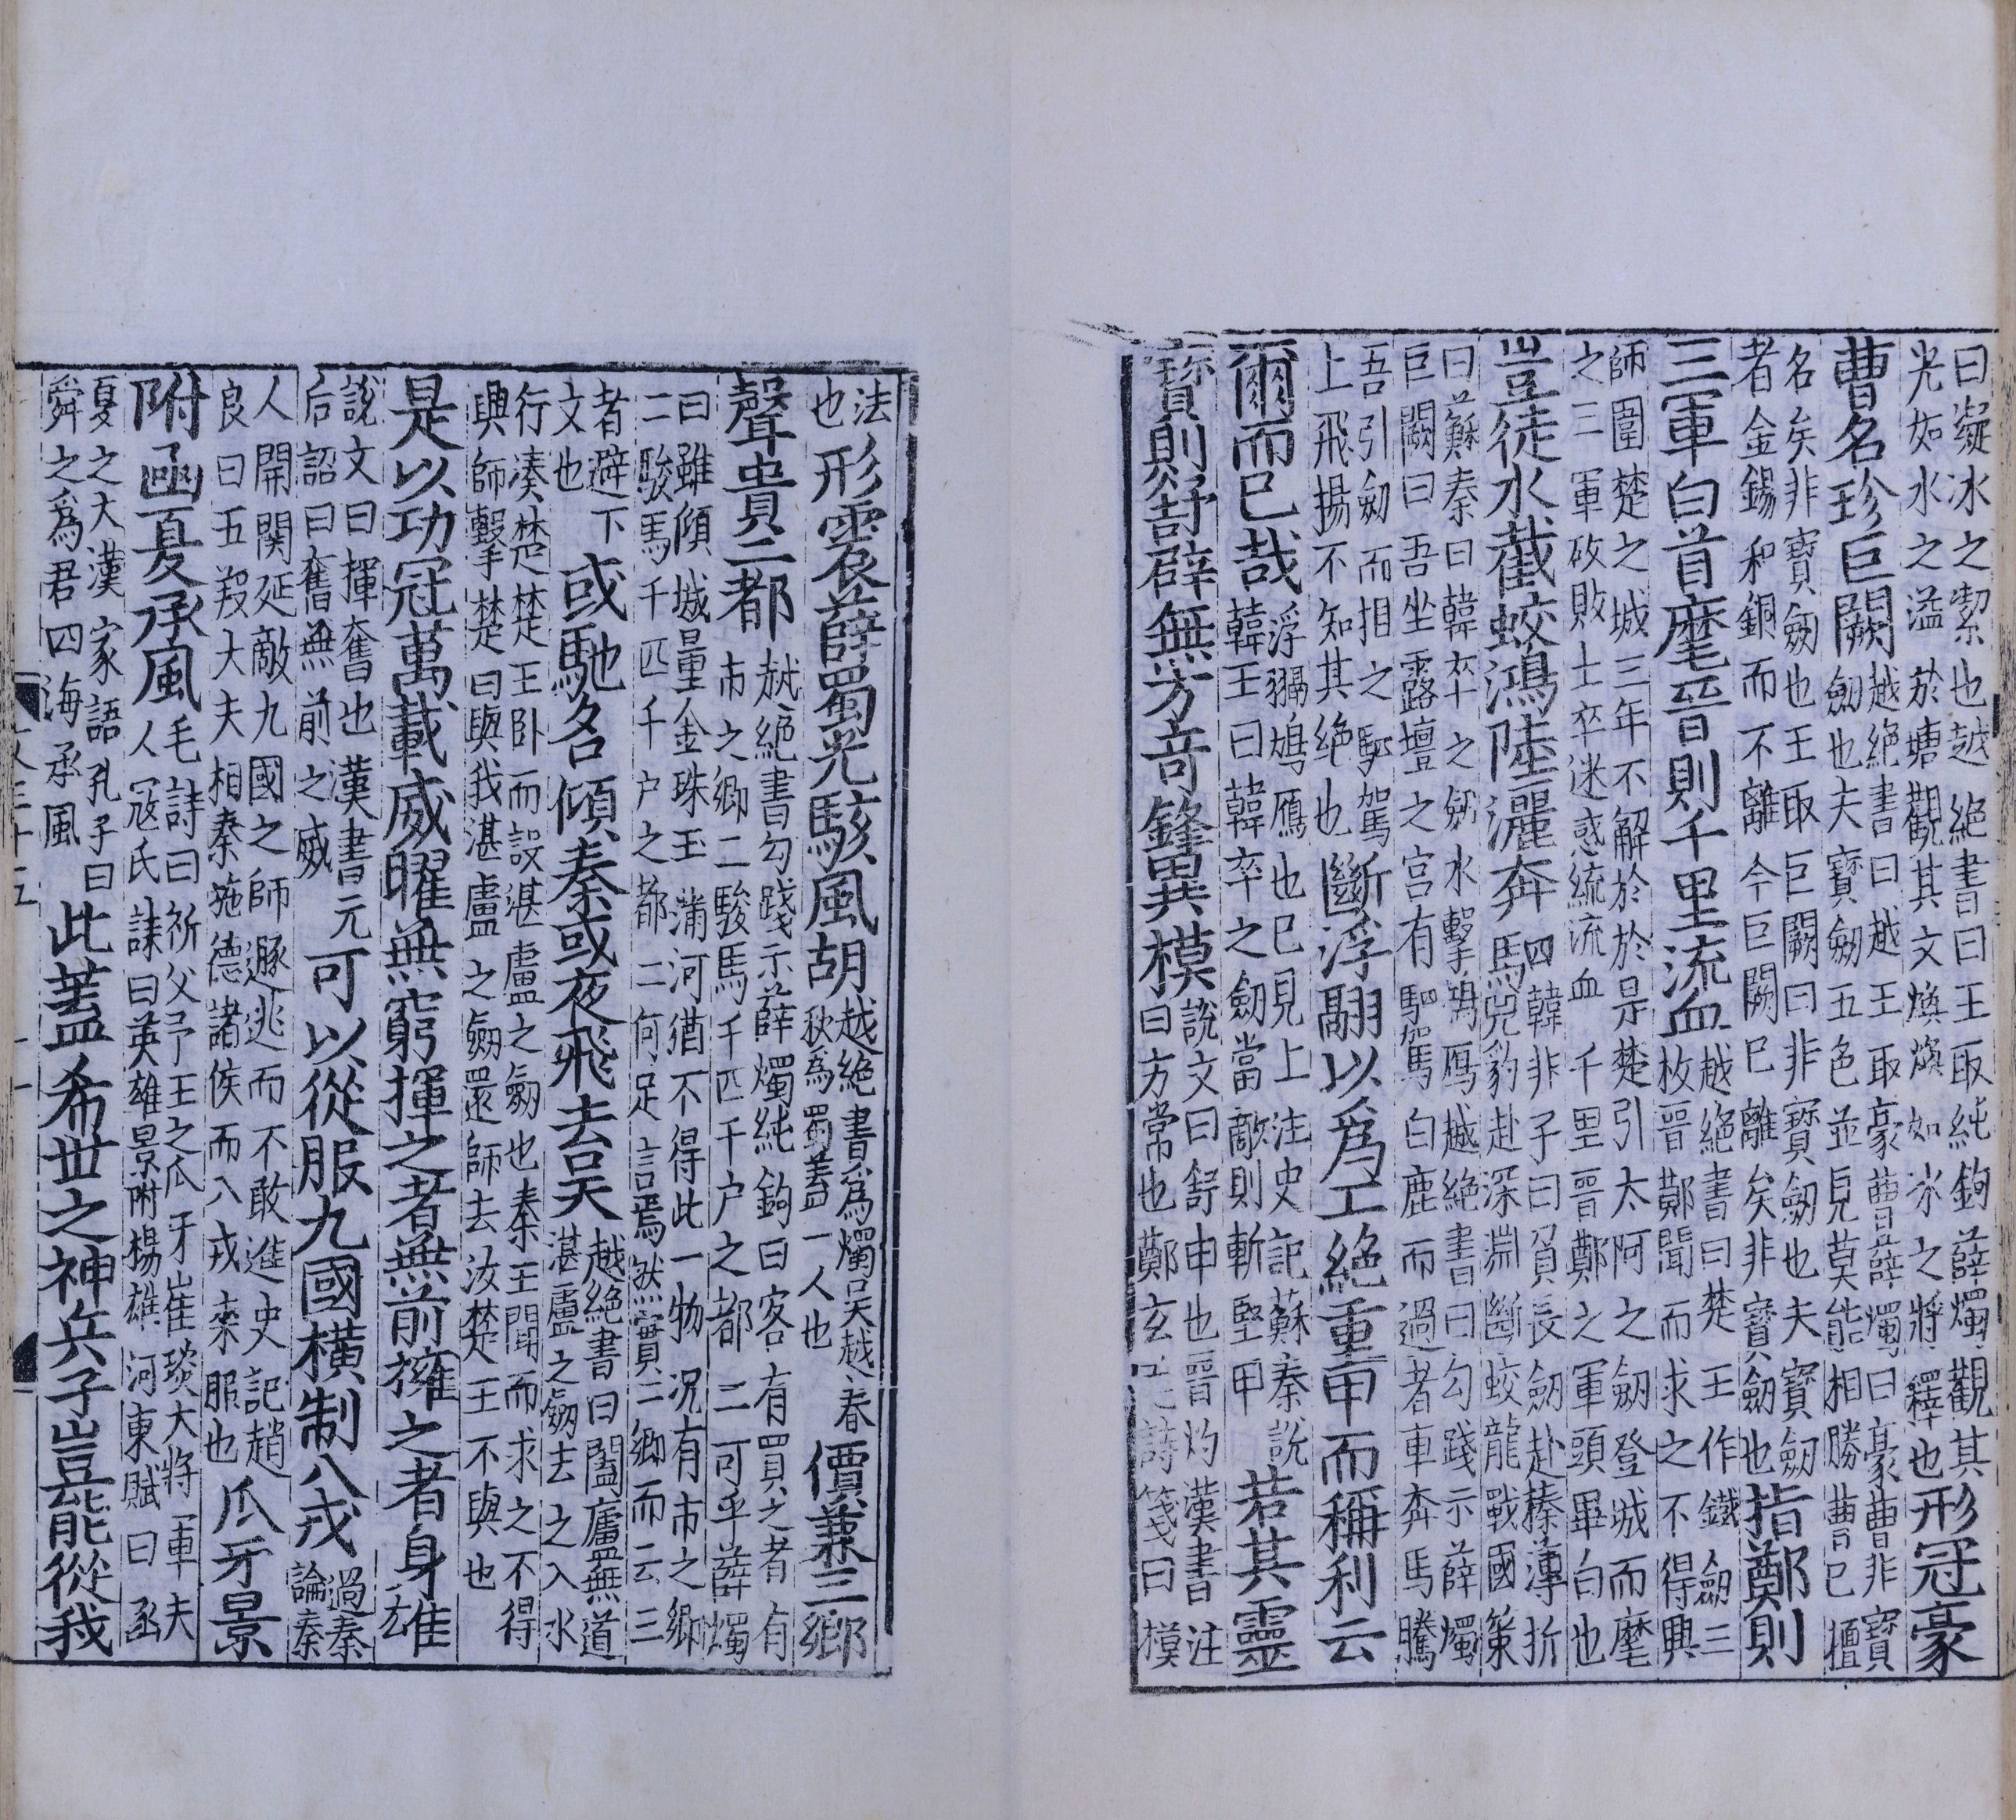 曰凝冰之潔也越絶書曰王取純鉤薛燭觀其
光如水之溢於塘觀其文煥煥如冰之將釋也形冠豪
曹名珍巨闕越絶書曰越王取豪曹薛燭曰豪曹非寶
劒也夫寶劒五色並見莫能相勝曹已擅
名矣非寶劒也王取巨闕曰非寶劒也夫寶劒
者金錫和銅而不離今巨闕已離矣非寶劒也指鄭則
三軍白首麾晉則千里流血越絶書曰楚王作鐵劒三
枚晉鄭聞而求之不得興
師圍楚之城三年不解於於是楚引太阿之劒登城而麾
之三軍破敗士卒迷惑流血千里晉鄭之軍頭畢白也
豈徒水截蛟鴻陸灑奔馬四韓非子曰負長劒赴榛薄折
兕豹赴深淵斷蛟龍戰國策
曰蘇秦曰韓卒之劒水擊鴻鴈越絶書曰勾踐示薛燭
巨闕曰吾坐露壇之宮有駟駕白鹿而過者車奔馬騰
吾引劒而相之駟駕
上飛揚不知其絶也斷浮翮以爲工絶重甲而稱利云
爾而已哉浮翮鳩鴈也已見上注史記蘇秦說
韓王曰韓卒之劒當敵則斬堅甲若其靈
寶則舒辟無方奇鋒異模說文曰舒申也晉灼漢書注
曰方常也鄭玄詩箋曰模
法
也形震薛蜀光駭風胡越絶書爲燭吳越春
秋為蜀蓋一人也價兼三鄉
聲貴二都越絶書勾踐示薛燭純鉤曰客有買之者有
市之鄉二駿馬千匹千户之都二可乎薛燭
曰雖傾城量金珠玉滿河猶不得此一物况有市之鄉
二駿馬千匹千户之都二何足言焉然實二鄉而云三
者避下
文也或馳名傾秦或夜飛去吳越絶書曰闔廬無道
湛盧之劒去之入水
行凑楚楚王卧而設湛盧之劒也秦王聞而求之不得
興師擊楚曰與我湛盧之劒還師去汝楚王不與也
是以功冠萬載威曜無窮揮之者無前擁之者身雄
說文曰揮奮也漢書元
后詔曰奮無前之威可以從服九國橫制八戎過秦
論秦
人開関延敵九國之師遯逃而不敢進史記趙
良曰五羖大夫相秦施德諸侯而八戎來服也爪牙景
附函夏承風毛詩曰祈父予王之爪牙崔琰大將軍夫
人冦氏誄曰英雄景附楊雄河東賦曰函
夏之大漢家語孔子曰
舜之爲君四海承風此蓋希世之神兵子豈能從我